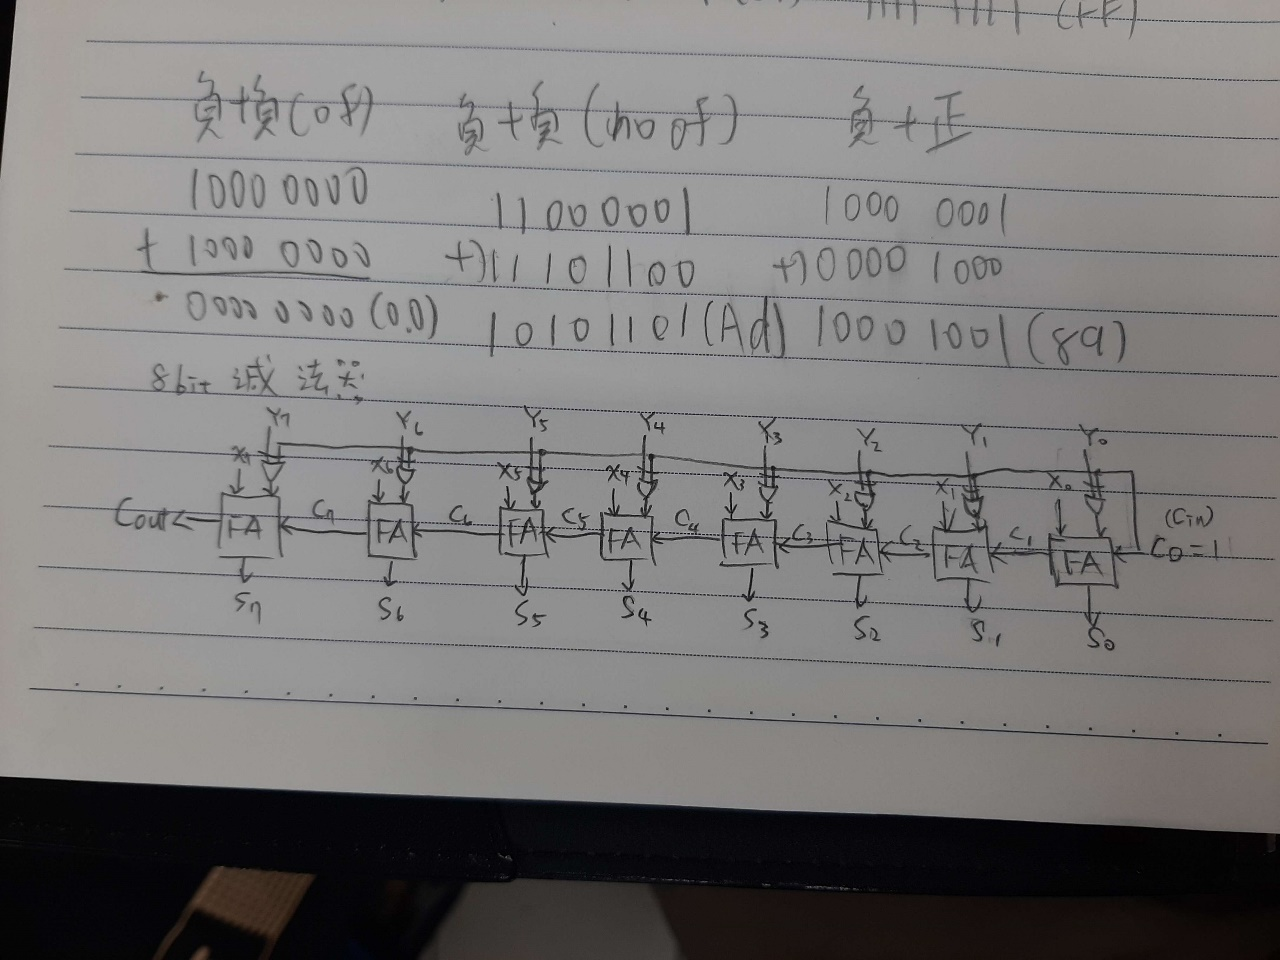 (FF)
負+負(of) 負+負(no of) 負+正
1000 0000 11000001 1000 0001
+ 1000 0000 +)11101100 +)0000 1000
0000 0000 (0.0) 10101101(Ad) 1000 1001(89)
8bit 減法器
Y7 Y6 Y5 Y4 Y3 Y2 Y1 Y0
X7 X6 X5 X4 X3 X2 X1 X0
(Cin)
Cout FA C7 FA C6 FA C5 FA C4 FA C3 FA C2 FA C1 FA C0=1
S7 S6 S5 S4 S3 S2 S1 S0